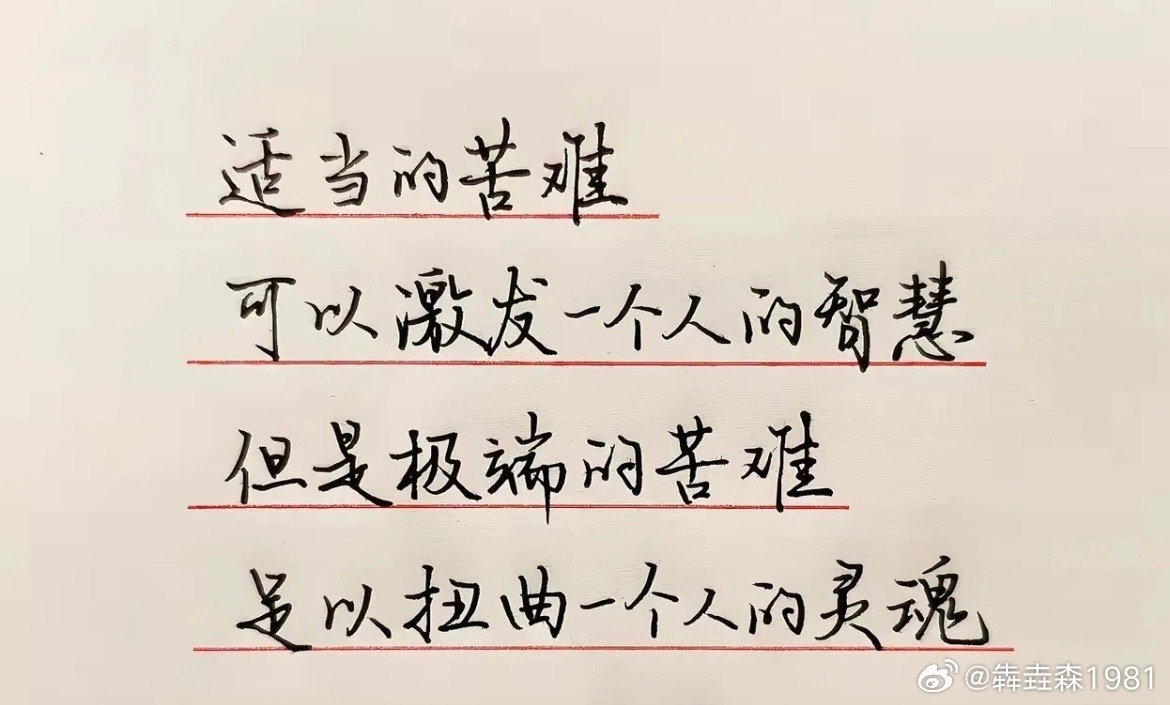 适当的苦难
可以激发一个人的智慧
但是极端的苦难
足以扭曲一个人的灵魂
@犇垚森1981